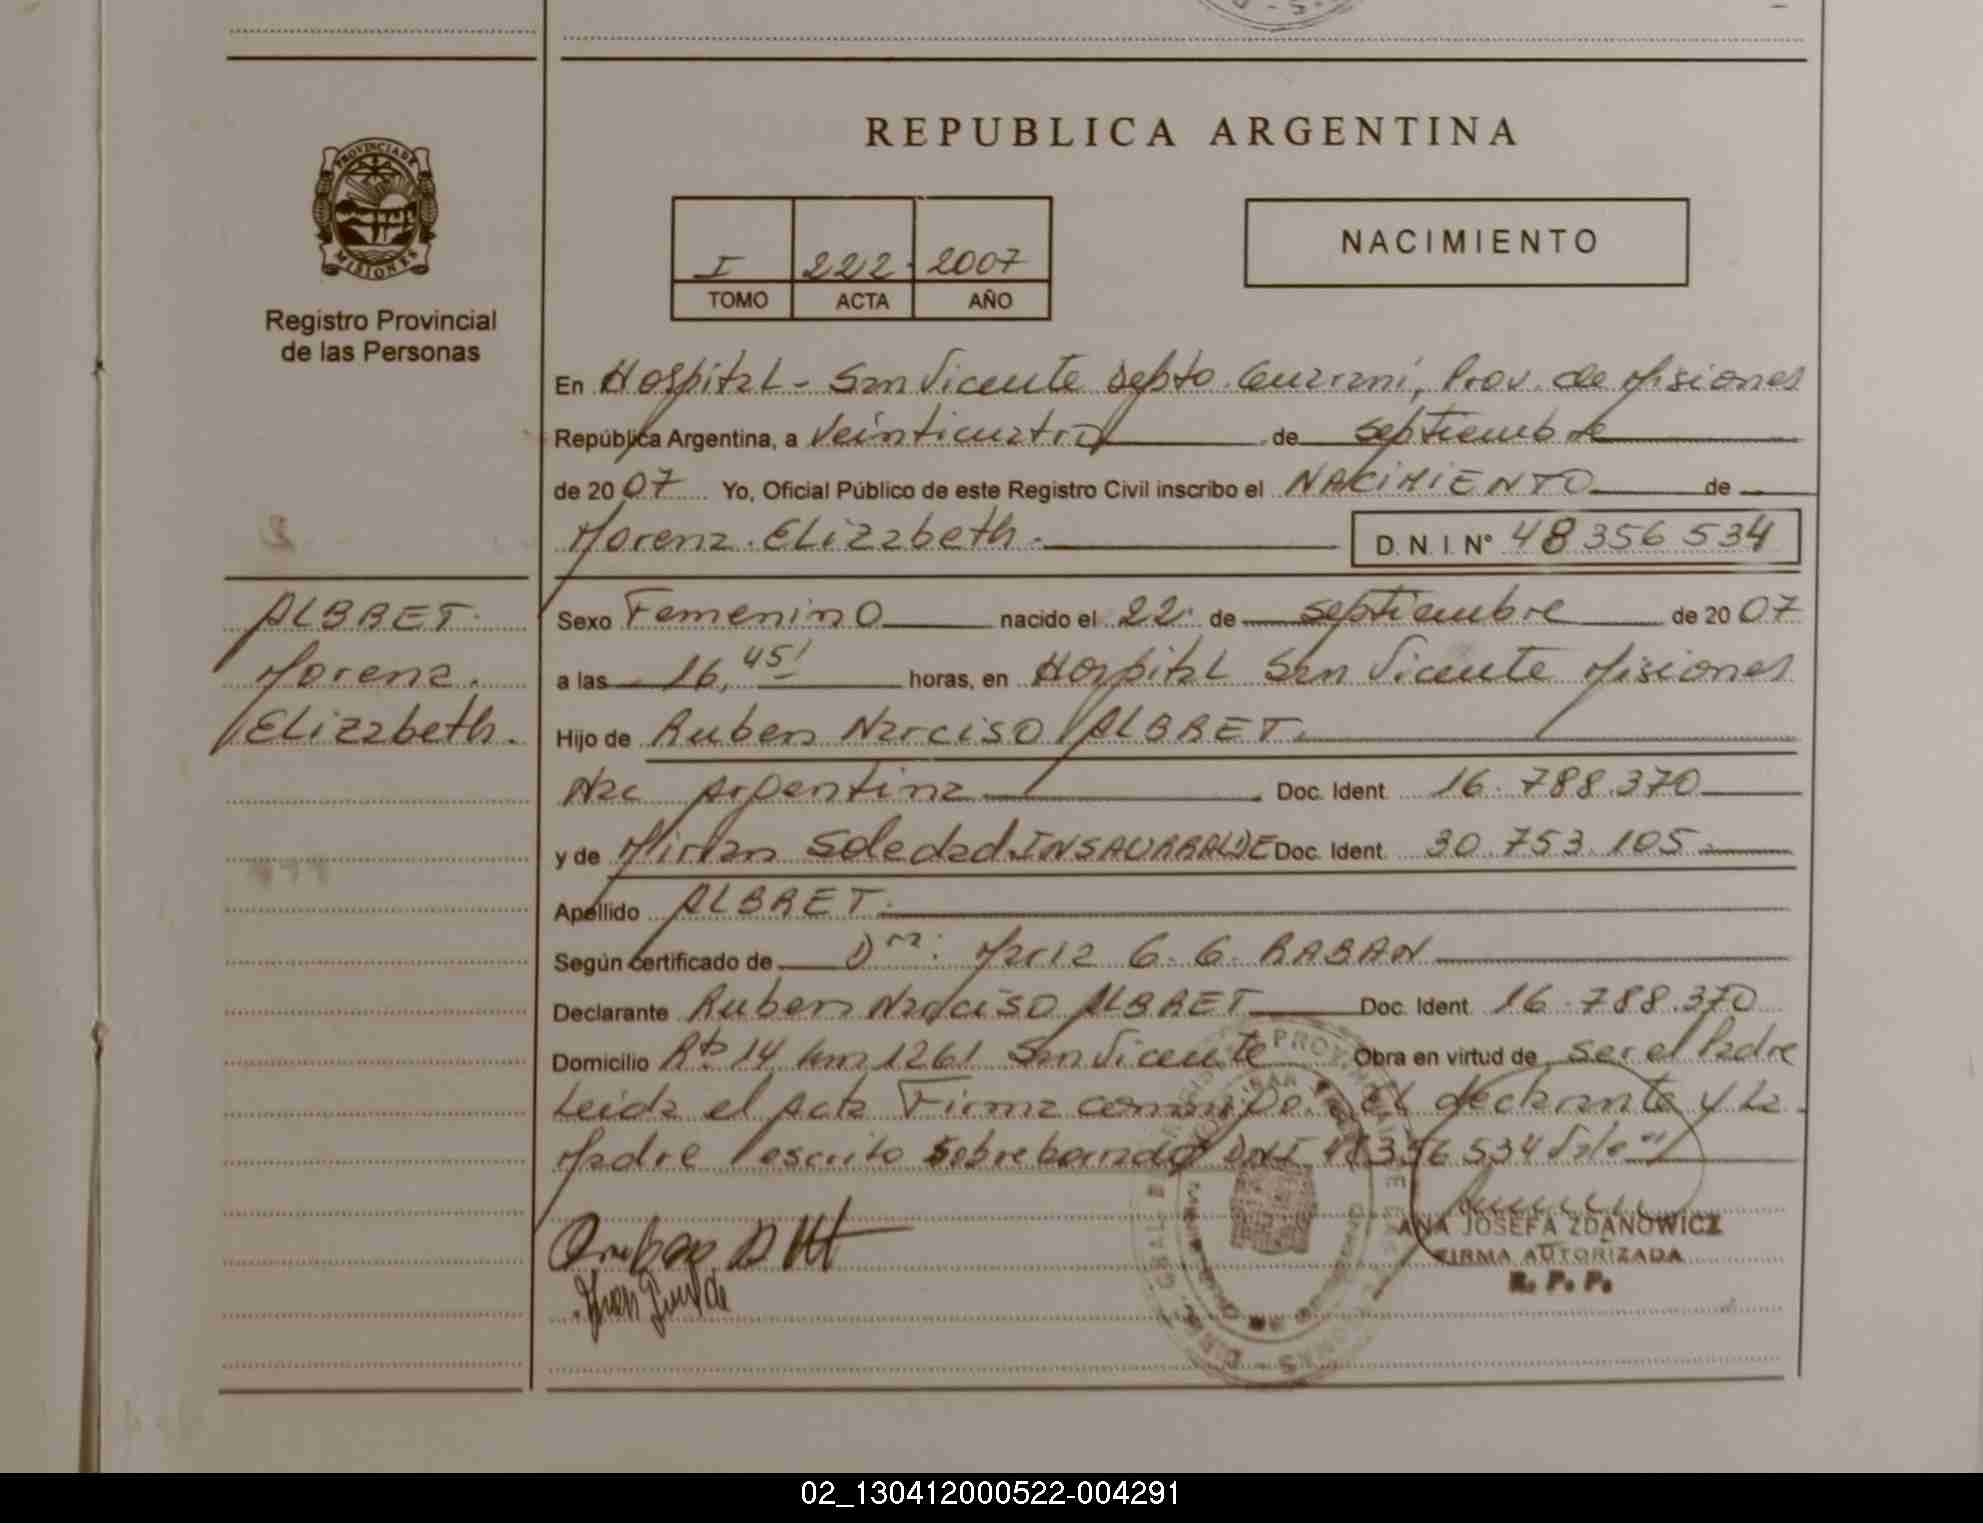 REPUBLICA ARGENTINA
PROVINCIA DE MISIONES
Registro Provincial
de las Personas
I 222 2007
TOMO ACTA AÑO
NACIMIENTO
En Hospital - San Vicente Depto. Guarani, Prov. de Misiones
República Argentina, a Veinticuatro de septiembre
de 2007 Yo, Oficial Público de este Registro Civil inscribo el NACIMIENTO de
Morena Elizabeth. D.N.I. N° 48356534
ALBRET.
Morena.
Elizabeth.
Sexo Femenino nacido el 22 de septiembre de 2007
a las 16,45' horas, en Hospital San Vicente Misiones
Hijo de Ruben Narciso ALBRET.
Nac Argentina Doc. Ident. 16.788.370
y de Mirian Soledad INSAURRALDE Doc. Ident. 30.753.105
Apellido ALBRET.
Según certificado de Dra: Maria G. G. RABAN
Declarante Ruben Narciso ALBRET Doc. Ident. 16.788.370
Domicilio Rta 14 km 1261 San Vicente Obra en virtud de ser el Padre
Leida el Acta Firma conmigo. El declarante y La
Madre escrito sobreborrado DNI 48356534 Vale
ANA JOSEFA ZDANOWICZ
FIRMA AUTORIZADA
R. P. P.
02_130412000522-004291